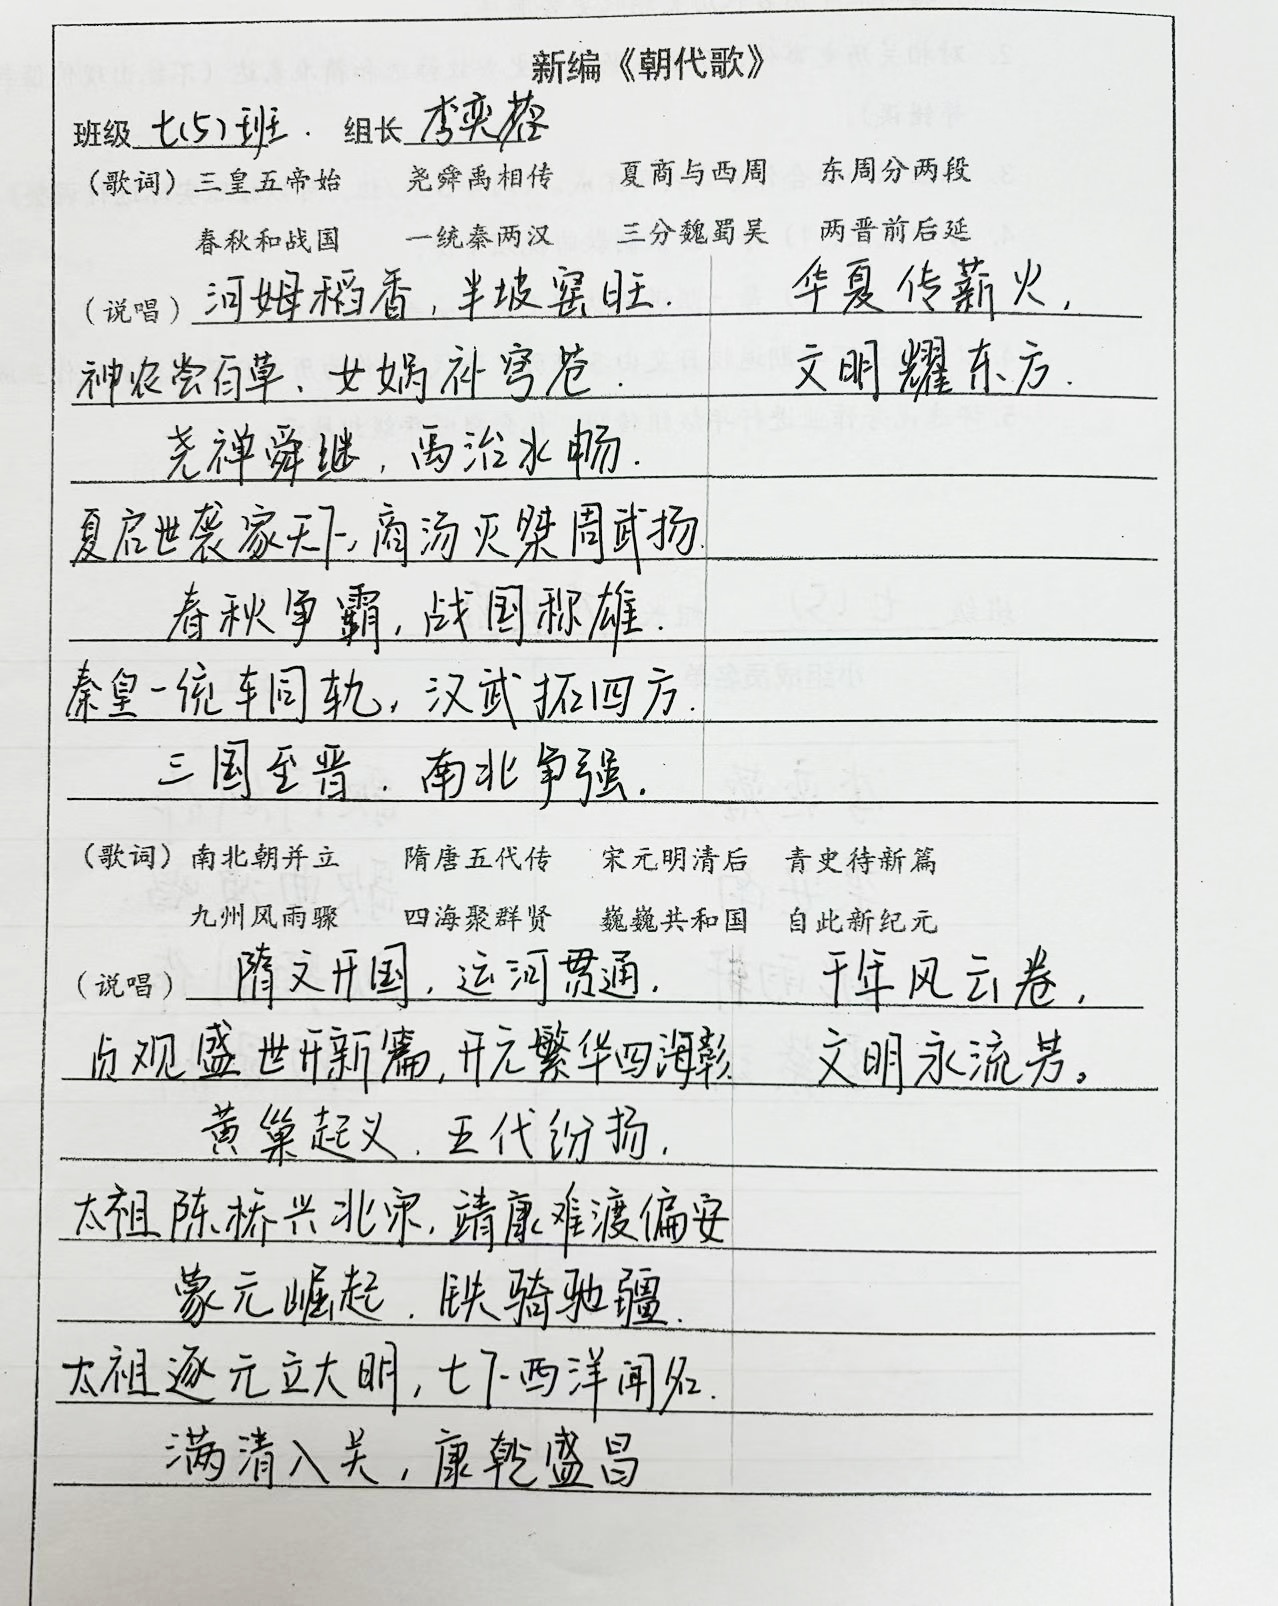 新编《朝代歌》
班级 七(5)班. 组长 李奕
(歌词) 三皇五帝始 尧舜禹相传 夏商与西周 东周分两段
春秋和战国 一统秦两汉 三分魏蜀吴 两晋前后延
(说唱) 河姆稻香,半坡窑旺. 华夏传薪火,
神农尝百草、女娲补穹苍. 文明耀东方.
尧禅舜继,禹治水畅.
夏启世袭家天下,商汤灭桀周武扬.
春秋争霸,战国称雄.
秦皇一统车同轨,汉武拓四方.
三国至晋.南北争强.
(歌词) 南北朝并立 隋唐五代传 宋元明清后 青史待新篇
九州风雨骤 四海聚群贤 巍巍共和国 自此新纪元
(说唱) 隋文开国,运河贯通. 千年风云卷,
贞观盛世开新篇,开元繁华四海彰 文明永流芳。
黄巢起义.五代纷扬,
太祖陈桥兴北宋,靖康难渡偏安
蒙元崛起.铁骑驰疆.
太祖逐元立大明,七下西洋闻名.
满清入关,康乾盛昌